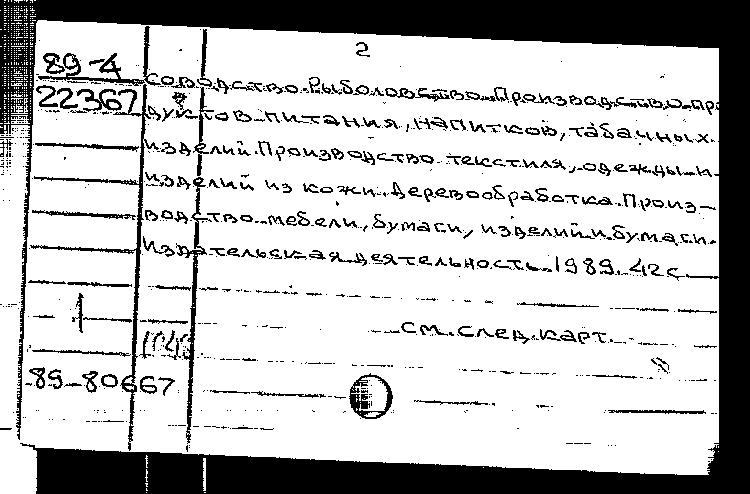 2
89-4
22367
соводство. Рыболовство. Производство про
дуктов питания, напитков, табачных
изделий. Производство текстиля, одежды и
изделий из кожи. Деревообработка. Произ-
водство мебели, бумаги, изделий и бумаги.
Издательская деятельность. 1989. 42 с.
см. след. карт.
89-80667